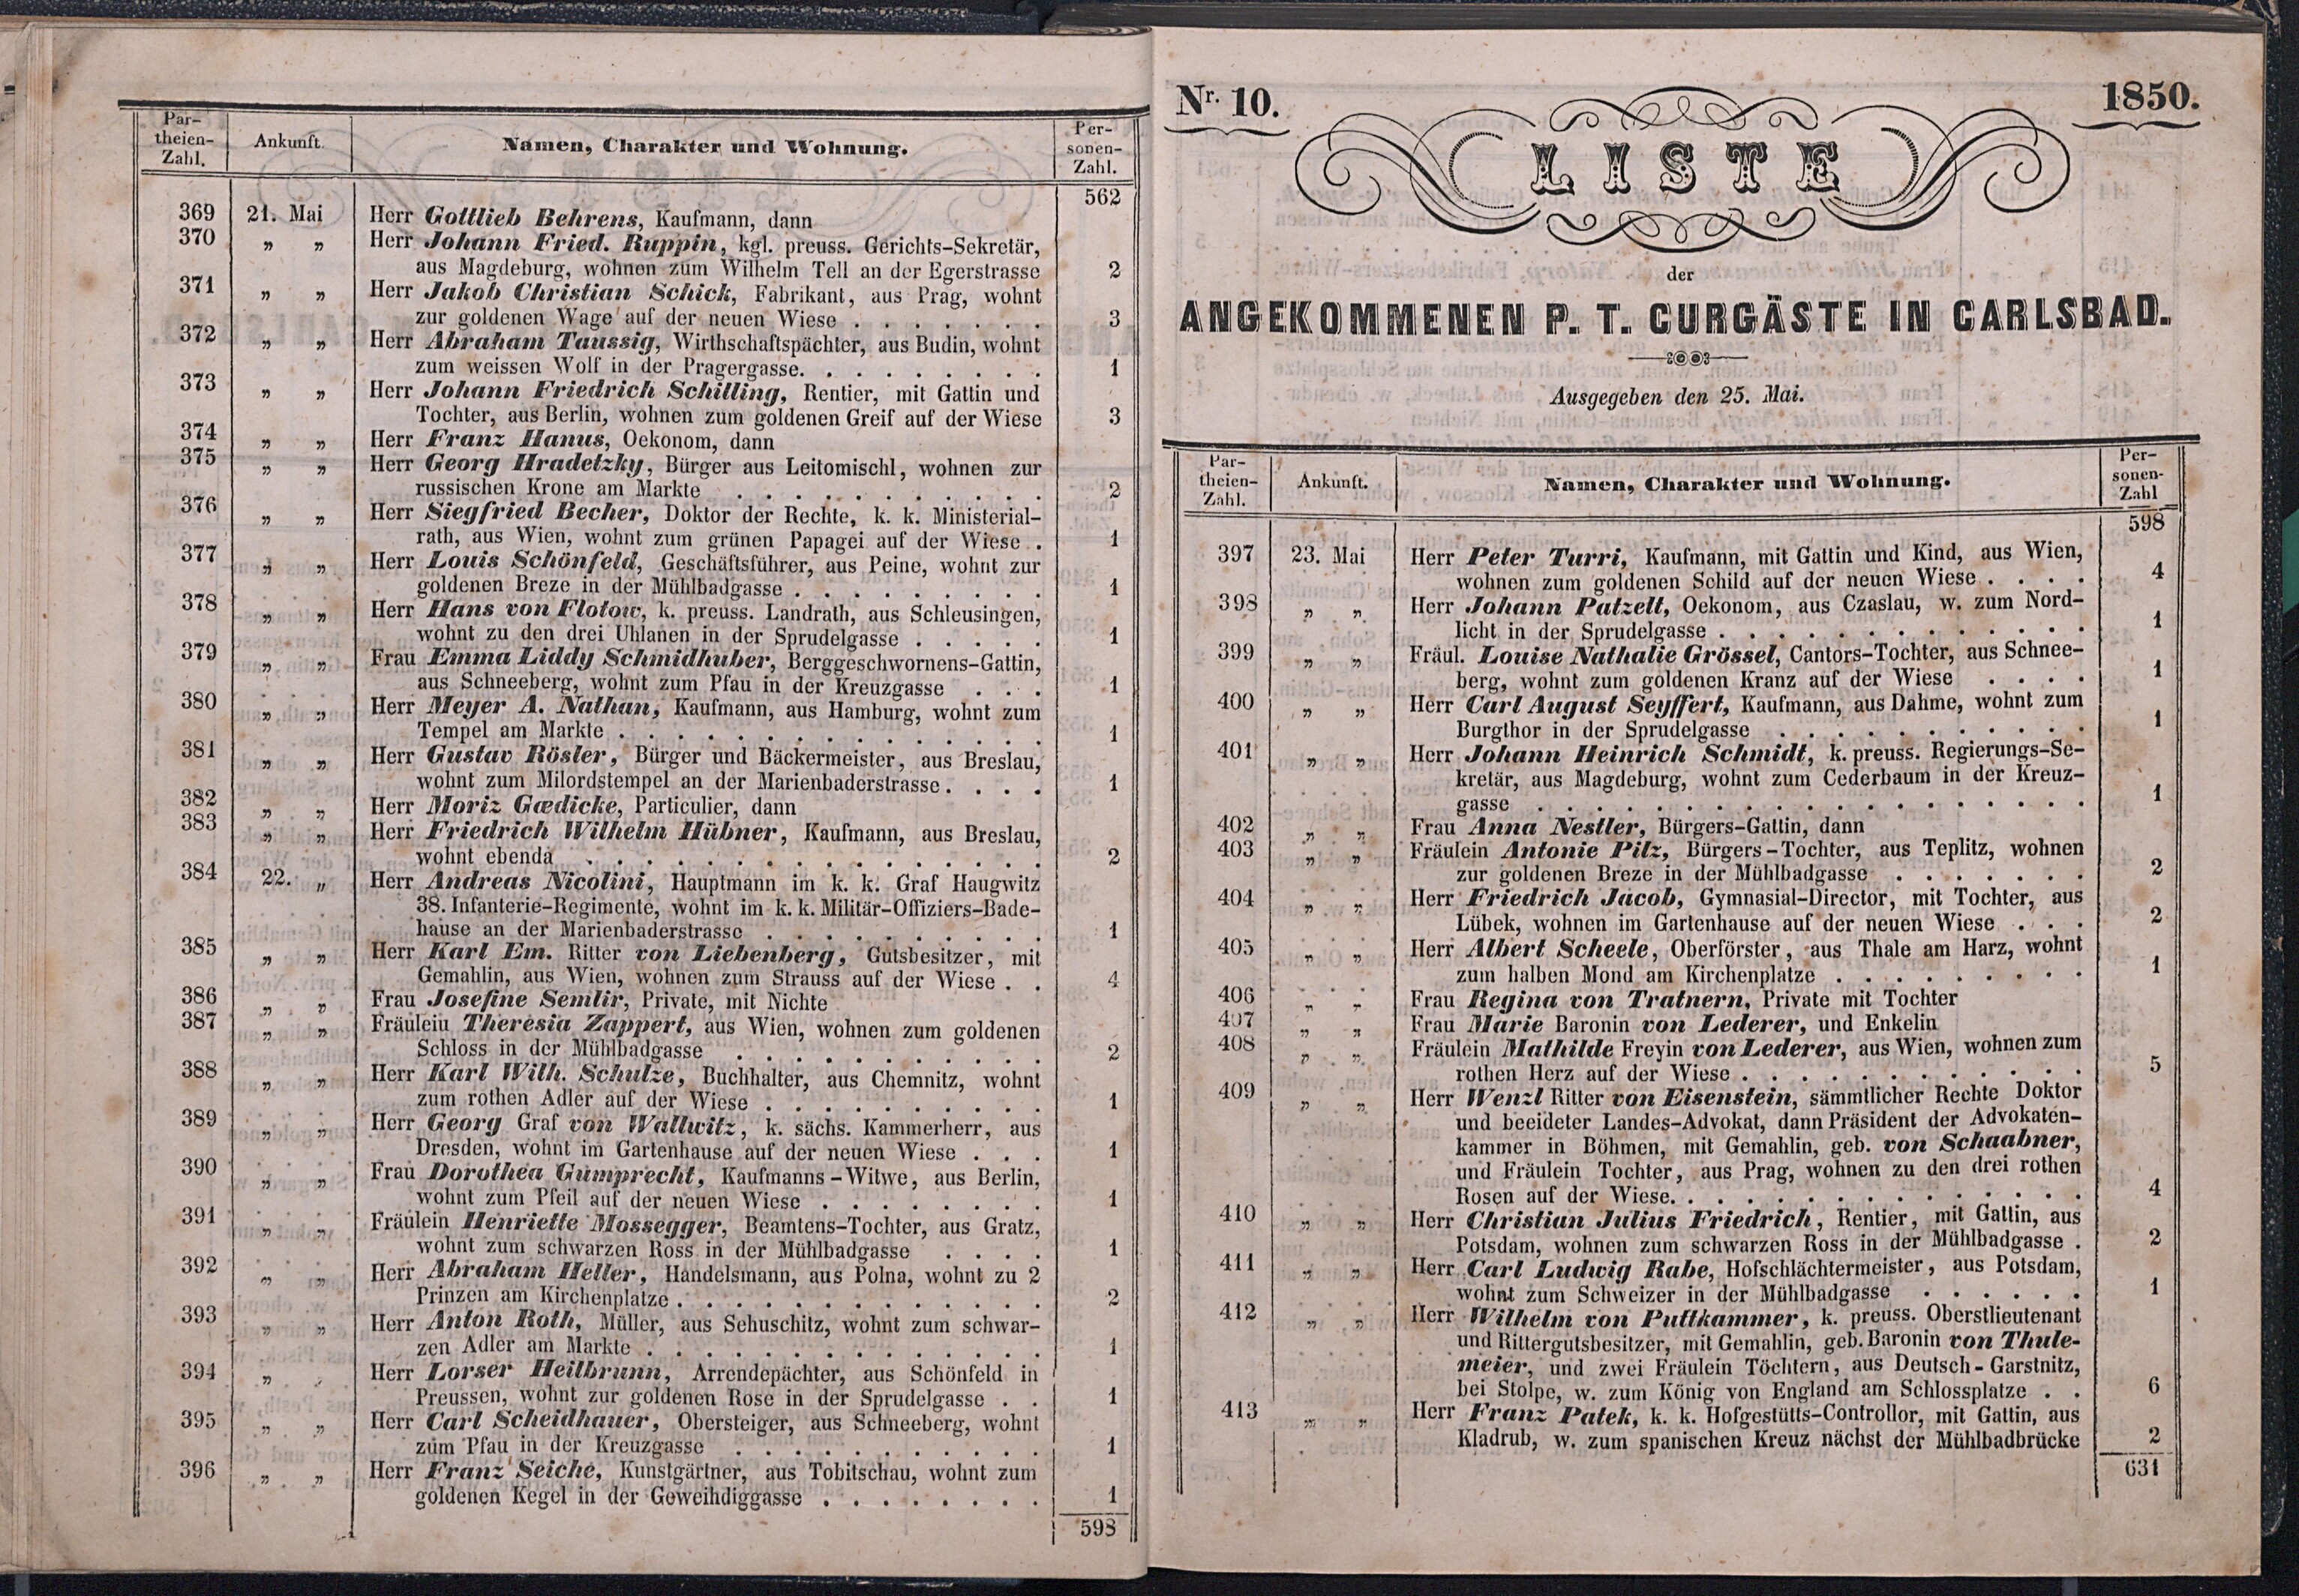 Par-
theien-
Zahl.
Ankunft.
Namen, Charakter und Wohnung.
Per-
sonen-
Zahl.
562
369 21. Mai Herr Gottlieb Behrens, Kaufmann, dann
370 „ „ Herr Johann Fried. Ruppin, kgl. preuss. Gerichts-Sekretär,
aus Magdeburg, wohnen zum Wilhelm Tell an der Egerstrasse 2
371 „ „ Herr Jakob Christian Schick, Fabrikant, aus Prag, wohnt
zur goldenen Wage auf der neuen Wiese . . . . . . . 3
372 „ „ Herr Abraham Taussig, Wirthschaftspächter, aus Budin, wohnt
zum weissen Wolf in der Pragergasse. . . . . . . . . 1
373 „ „ Herr Johann Friedrich Schilling, Rentier, mit Gattin und
Tochter, aus Berlin, wohnen zum goldenen Greif auf der Wiese 3
374 „ „ Herr Franz Hanus, Oekonom, dann
375 „ „ Herr Georg Hradetzky, Bürger aus Leitomischl, wohnen zur
russischen Krone am Markte . . . . . . . . . . . 2
376 „ „ Herr Siegfried Becher, Doktor der Rechte, k. k. Ministerial-
rath, aus Wien, wohnt zum grünen Papagei auf der Wiese . 1
377 „ „ Herr Louis Schönfeld, Geschäftsführer, aus Peine, wohnt zur
goldenen Breze in der Mühlbadgasse . . . . . . . . . 1
378 „ „ Herr Hans von Flotow, k. preuss. Landrath, aus Schleusingen,
wohnt zu den drei Uhlanen in der Sprudelgasse . . . . . 1
379 „ „ Frau Emma Liddy Schmidhuber, Berggeschwornens-Gattin,
aus Schneeberg, wohnt zum Pfau in der Kreuzgasse . . . 1
380 „ „ Herr Meyer A. Nathan, Kaufmann, aus Hamburg, wohnt zum
Tempel am Markte . . . . . . . . . . . . . . . 1
381 „ „ Herr Gustav Rösler, Bürger und Bäckermeister, aus Breslau,
wohnt zum Milordstempel an der Marienbaderstrasse. . . . 1
382 „ „ Herr Moriz Gædicke, Particulier, dann
383 „ „ Herr Friedrich Wilhelm Hübner, Kaufmann, aus Breslau,
wohnt ebenda . . . . . . . . . . . . . . . . 2
384 22. „ Herr Andreas Nicolini, Hauptmann im k. k. Graf Haugwitz
38. Infanterie-Regimente, wohnt im k. k. Militär-Offiziers-Bade-
hause an der Marienbaderstrasse . . . . . . . . . . 1
385 „ „ Herr Karl Em. Ritter von Liebenberg, Gutsbesitzer, mit
Gemahlin, aus Wien, wohnen zum Strauss auf der Wiese . . 4
386 „ „ Frau Josefine Semlir, Private, mit Nichte
387 „ „ Fräulein Theresia Zappert, aus Wien, wohnen zum goldenen
Schloss in der Mühlbadgasse . . . . . . . . . . . 2
388 „ „ Herr Karl Wilh. Schulze, Buchhalter, aus Chemnitz, wohnt
zum rothen Adler auf der Wiese . . . . . . . . . . 1
389 „ „ Herr Georg Graf von Wallwitz, k. sächs. Kammerherr, aus
Dresden, wohnt im Gartenhause auf der neuen Wiese . . . 1
390 „ „ Frau Dorothea Gumprecht, Kaufmanns-Witwe, aus Berlin,
wohnt zum Pfeil auf der neuen Wiese . . . . . . . . 1
391 „ „ Fräulein Henriette Mossegger, Beamtens-Tochter, aus Gratz,
wohnt zum schwarzen Ross in der Mühlbadgasse . . . . 1
392 „ „ Herr Abraham Heller, Handelsmann, aus Polna, wohnt zu 2
Prinzen am Kirchenplatze . . . . . . . . . . . . . 2
393 „ „ Herr Anton Roth, Müller, aus Schuschitz, wohnt zum schwar-
zen Adler am Markte . . . . . . . . . . . . . . 1
394 „ „ Herr Lorser Heilbrunn, Arrendepächter, aus Schönfeld in
Preussen, wohnt zur goldenen Rose in der Sprudelgasse . . 1
395 „ „ Herr Carl Scheidhauer, Obersteiger, aus Schneeberg, wohnt
zum Pfau in der Kreuzgasse . . . . . . . . . . . 1
396 „ „ Herr Franz Seiche, Kunstgärtner, aus Tobitschau, wohnt zum
goldenen Kegel in der Geweihdiggasse . . . . . . . . 1
598
Nr. 10. 1850.
LISTE
der
ANGEKOMMENEN P. T. CURGÄSTE IN CARLSBAD.
Ausgegeben den 25. Mai.
Par-
theien-
Zahl.
Ankunft.
Namen, Charakter und Wohnung.
Per-
sonen-
Zahl
598
397 23. Mai Herr Peter Turri, Kaufmann, mit Gattin und Kind, aus Wien,
wohnen zum goldenen Schild auf der neuen Wiese . . . . 4
398 „ „ Herr Johann Patzelt, Oekonom, aus Czaslau, w. zum Nord-
licht in der Sprudelgasse . . . . . . . . . . . . . 1
399 „ „ Fräul. Louise Nathalie Grössel, Cantors-Tochter, aus Schnee-
berg, wohnt zum goldenen Kranz auf der Wiese . . . . 1
400 „ „ Herr Carl August Seyffert, Kaufmann, aus Dahme, wohnt zum
Burgthor in der Sprudelgasse . . . . . . . . . . . 1
401 „ „ Herr Johann Heinrich Schmidt, k. preuss. Regierungs-Se-
kretär, aus Magdeburg, wohnt zum Cederbaum in der Kreuz-
gasse . . . . . . . . . . . . . . . . . . . 1
402 „ „ Frau Anna Nestler, Bürgers-Gattin, dann
403 „ „ Fräulein Antonie Pilz, Bürgers-Tochter, aus Teplitz, wohnen
zur goldenen Breze in der Mühlbadgasse . . . . . . . 2
404 „ „ Herr Friedrich Jacob, Gymnasial-Director, mit Tochter, aus
Lübek, wohnen im Gartenhause auf der neuen Wiese . . . 2
405 „ „ Herr Albert Scheele, Oberförster, aus Thale am Harz, wohnt
zum halben Mond am Kirchenplatze . . . . . . . . . 1
406 „ „ Frau Regina von Tratnern, Private mit Tochter
407 „ „ Frau Marie Baronin von Lederer, und Enkelin
408 „ „ Fräulein Mathilde Freyin von Lederer, aus Wien, wohnen zum
rothen Herz auf der Wiese . . . . . . . . . . . . 5
409 „ „ Herr Wenzl Ritter von Eisenstein, sämmtlicher Rechte Doktor
und beeideter Landes-Advokat, dann Präsident der Advokaten-
kammer in Böhmen, mit Gemahlin, geb. von Schaabner,
und Fräulein Tochter, aus Prag, wohnen zu den drei rothen
Rosen auf der Wiese. . . . . . . . . . . . . . . 4
410 „ „ Herr Christian Julius Friedrich, Rentier, mit Gattin, aus
Potsdam, wohnen zum schwarzen Ross in der Mühlbadgasse . 2
411 „ „ Herr Carl Ludwig Rabe, Hofschlächtermeister, aus Potsdam,
wohnt zum Schweizer in der Mühlbadgasse . . . . . . 1
412 „ „ Herr Wilhelm von Puttkammer, k. preuss. Oberstlieutenant
und Rittergutsbesitzer, mit Gemahlin, geb. Baronin von Thule-
meier, und zwei Fräulein Töchtern, aus Deutsch-Garstnitz,
bei Stolpe, w. zum König von England am Schlossplatze . . 6
413 „ „ Herr Franz Patek, k. k. Hofgestütts-Controllor, mit Gattin, aus
Kladrub, w. zum spanischen Kreuz nächst der Mühlbadbrücke 2
631